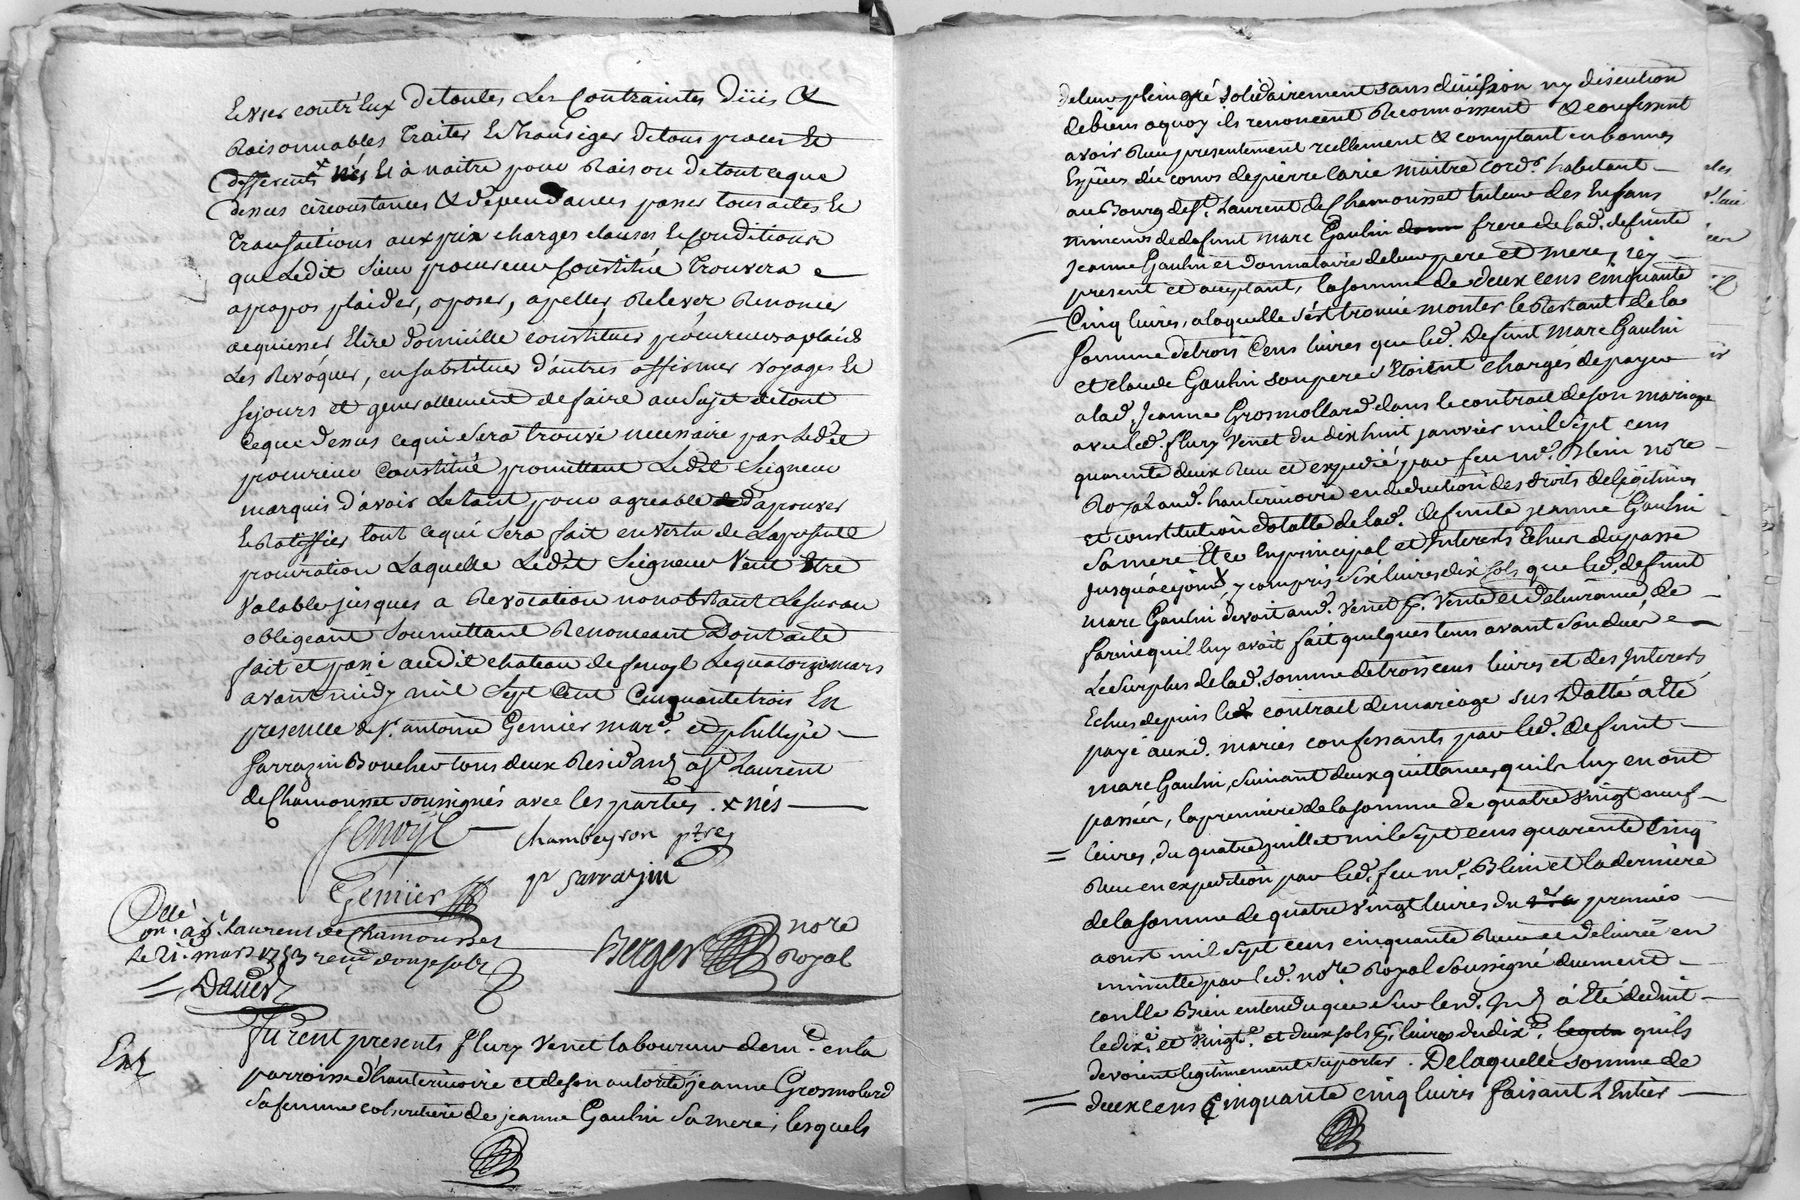 User contr'Eux de toutes Les Contraintes düës &
Raisonnables Traiter Et Transiger de tous proces Et
differents x nés Et à naitre pour Raison de tout ce que
dessus circonstances & dependances passer tous actes Et
Transactions aux prix charges clauses Et Conditions
que Ledit sieur procureur Constitué Trouvera
apropos plaider, oposer, apeller, Relever, Renoncer
acquiesser Elire domicille constituer procureurs aplaids
Les Revoquer, en substituer d'autres affirmer voyages Et
sejours et generallement de faire au sujet de tout
ceque dessus ce qui sera trouvé necessaire par Ledit
procureur Constitué promettant Ledit Seigneur
marquis d'avoir Le tout pour agreable d'aprouver
Et Ratiffier tout ce qui sera fait en vertu de La presente
procuration Laquelle Ledit Seigneur Veut Etre
Valable jusques a Revocation nonobstant Lesuran
obligeant soumettant Renonceant Dont acte
fait et passé audit chateau de fenoyl Le quatorze mars
avant midy mil Sept Cent Cinquante trois En
presence de Sr. antoine Gemier mard. et phillipe
Sarrazin Boucher tous deux Residants a St Laurent
de Chamousset soussignés avec les parties . x nés
fenoyl Chambeyron ptre
Gemier pr Sarrazin
Collé
on. a St. Laurent de Chamousset
Le 21. mars 1753 reçu douze sols
Berger nore
Royal
Dauer
Furent presents flury Venet laboureur dem.t en la
parroisse d'hauterivoire et de son autorité jeanne Grosmolard
sa femme cohéritiere de jeanne Gaulin sa mere, lesquels
de leur plein gré solidairement sans division ny discution
de biens aquoy ils renoncent Reconnoissent & confessent
avoir Reçu presentement reellement & comptant en bonnes
Especes du cours de pierre carie maitre cord.r habitant
au Bourg de St. Laurent de Chamousset tuteur des Enfans
mineurs de defunt marc Gaulin frere de lad. defunte
Jeanne Gaulin et donnataire de leur pere et mere, icy
present et acceptant, la somme de deux cens cinquante
Cinq livres, a laquelle s'est trouvé monter le Restant de la
somme de trois Cens livres que led. Defunt Marc Gaulin
et claude Gaulin son pere Etoient chargés de payer
a lad. Jeanne Grosmollard dans le contract de son mariage
avec led. flury Venet du dixhuit janvier mil sept cens
quarente deux Reçu et expedié par feu me. Blein nore
Royal aud. hauterivoire en deduction des droits de legitimes
et constitution dotalle de lad. defunte jeanne Gaulin
sa mere Et ce En principal et Interets Echus du passé
jusqu'a ce jour, y compris six livres dix sols que led. defunt
Marc Gaulin devoit aud. Venet p. Vente et delivrance de
farine qu'il luy avoit fait quelques tems avant son decès
Le surplus de lad. somme de trois cens livres et des Interets
Echus depuis led. contract de mariage sus Datté a eté
payé auxd. mariés confessants par led. defunt
marc Gaulin, suivant deux quittances qu'ils luy en ont
passées, la premiere de la somme de quatre vingt neuf
livres, du quatre juillet mil sept cens quarente Cinq
Reçu en expedition par led. feu me. Blein et la derniere
de la somme de quatre vingt livres du premier
aoust mil sept cens cinquante Reçue et delivrée en
minutte par led. nore Royal soussigné duement
conllé Bien entendu que sur les d. Int. a eté deduit
le dix.e et vingt.e et deux sols p. livres du dix.e qu'ils
devoient legitimement suporter . De laquelle somme de
deux cens Cinquante cinq livres faisant L'Entier